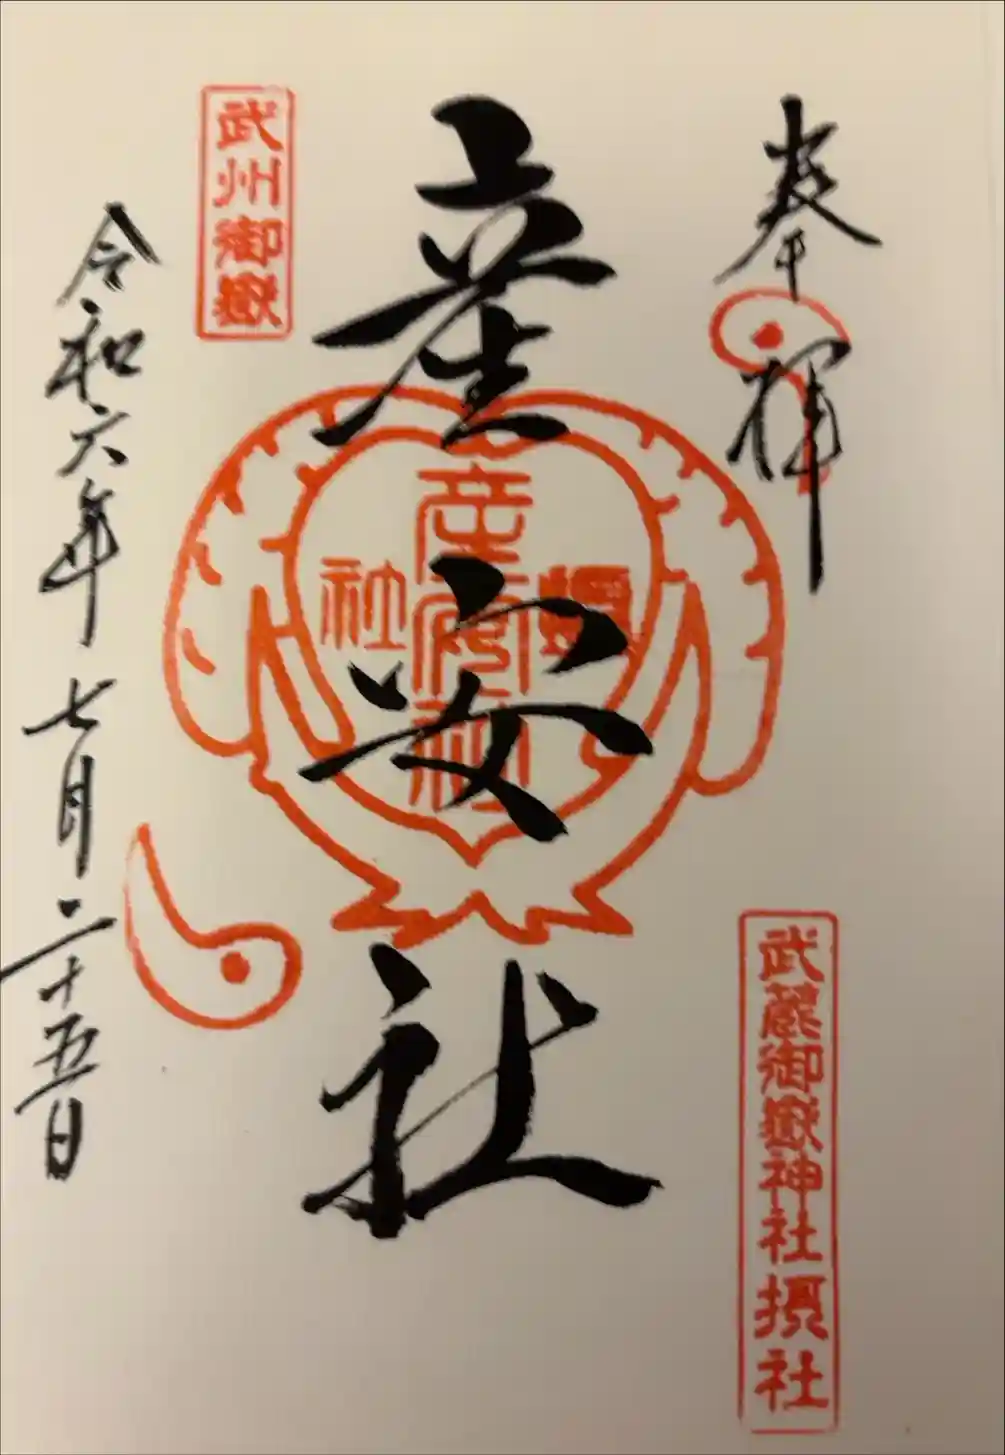 奉拝
武蔵御嶽神社摂社
産安社
摂社
産安社
武州御嶽
令和六年七月二十五日